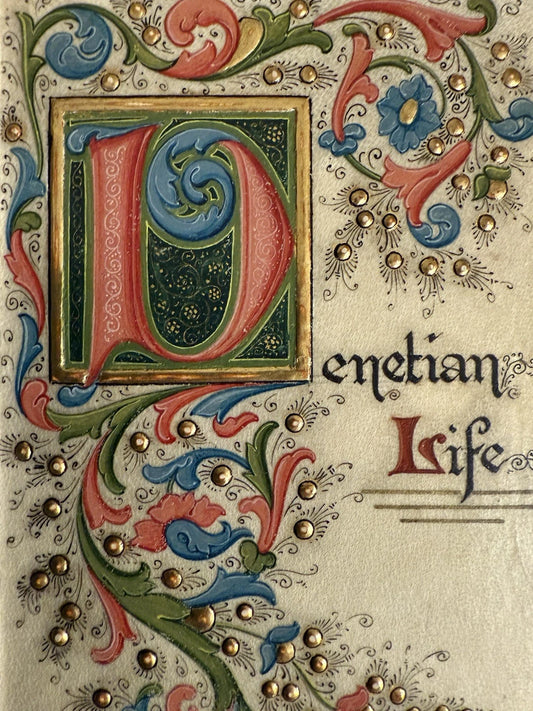 Venetian
Life